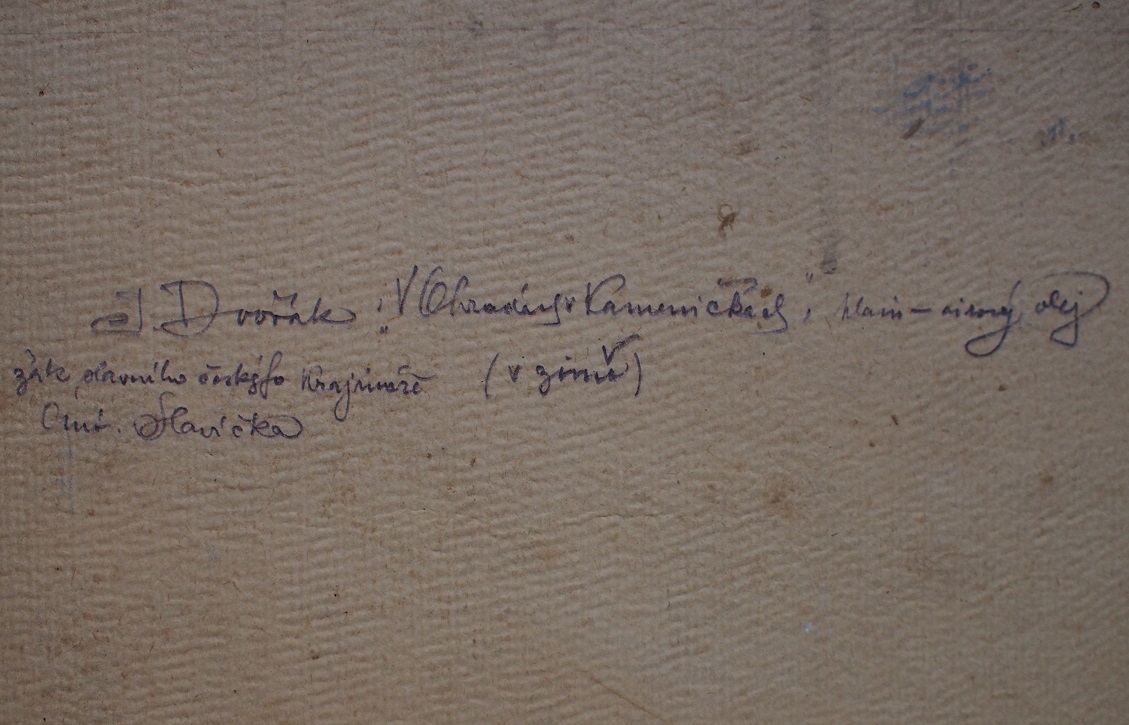 J. Dvořák „V Ohradách v Kameničkách", olej
žák slavného českého krajináře (v zimě)
Ant. Slavíčka